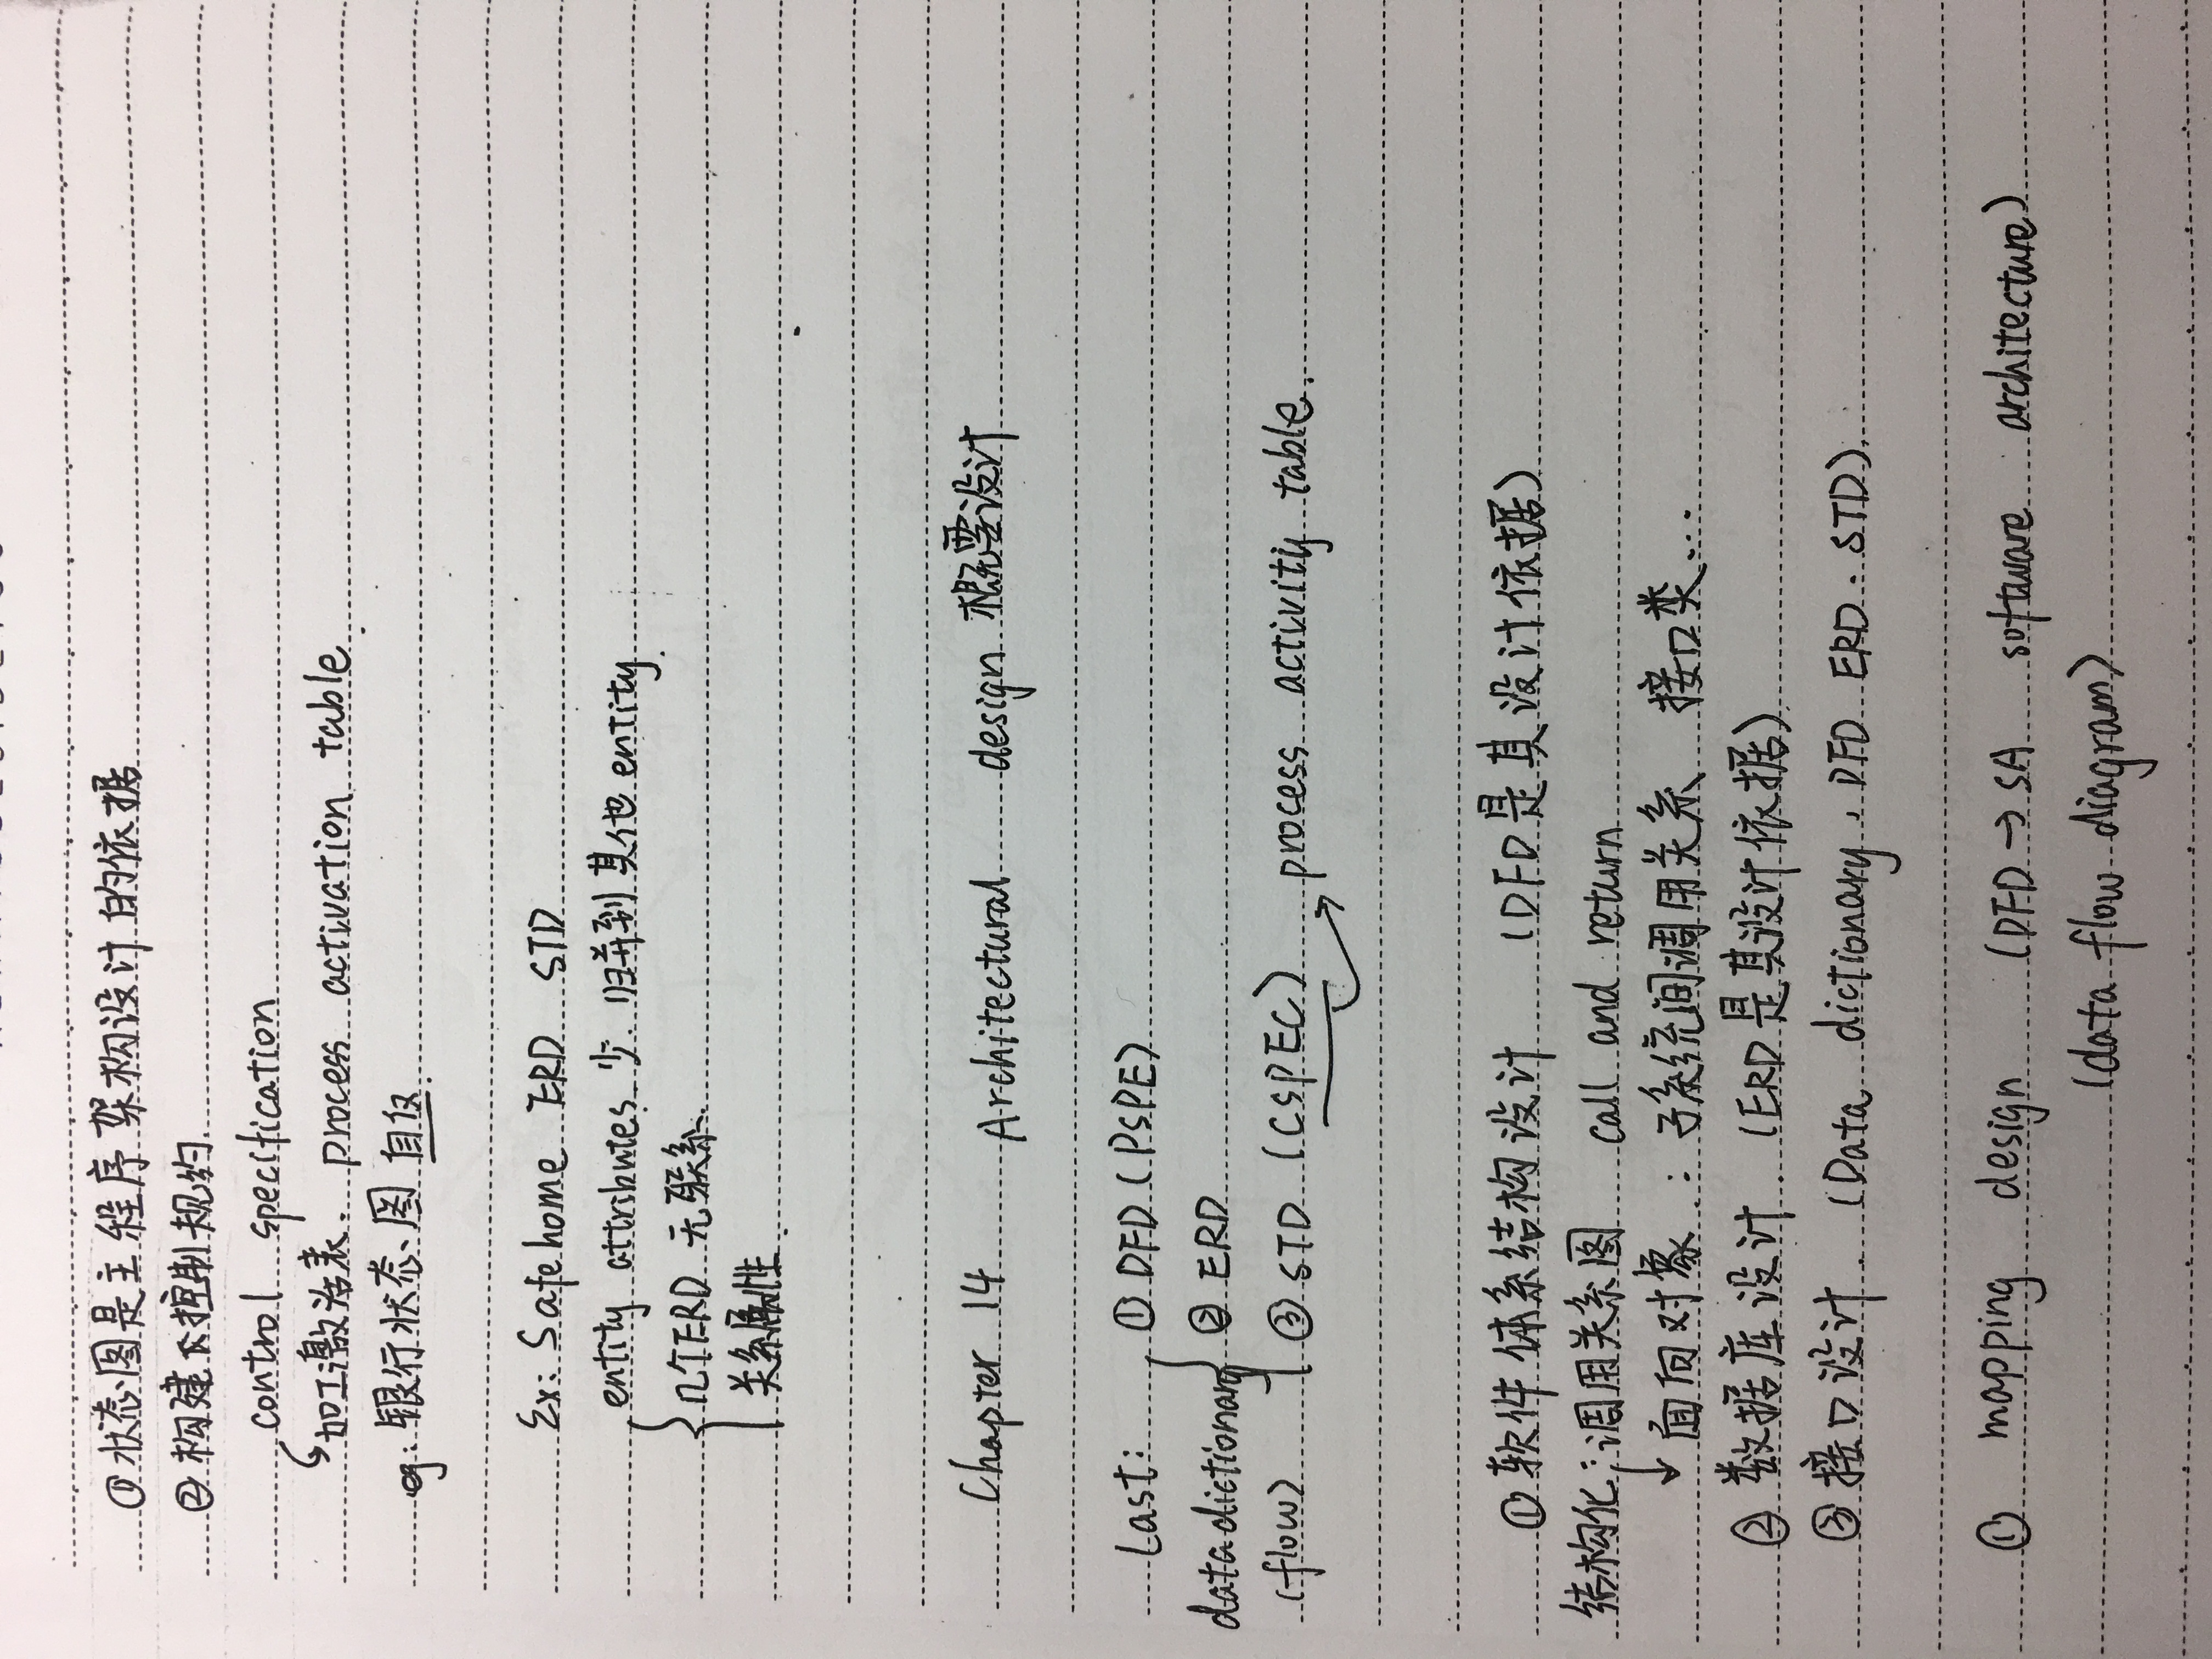 ①状态图是主程序架构设计的依据
②构建下控制规约.
control specification
加工激活表. process activation table.
eg: 银行状态图
Ex: Safehome ERD STD
entity attributes 少. 归并到其他entity.
几个ERD 无联系.
关系属性.
Chapter 14 Architectural design 概要设计
Last: ① DFD (PSPE)
data dictionary ② ERD
(flow) ③ STD (CSPEC) process activity table.
①软件体系结构设计 (DFD是其设计依据)
结构化:调用关系图 call and return
面向对象: 子系统间调用关系 接口类...
②数据库设计. (ERD是其设计依据)
③接口设计. (Data dictionary, DFD ERD. STD).
① mapping design (DFD→SA software architecture)
(data flow diagram)